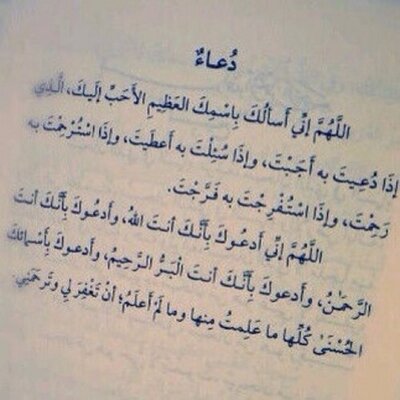 دُعـاءٌ
اللَّهُمَّ إِنِّي أَسألُكَ بِاسْمِكَ العَظِيمِ الأَحَبِّ إلَيكَ، الَّذِي
إذَا دُعِيتَ به أَجَبْتَ، وإِذَا سُئِلْتَ به أَعطَيتَ، وإذَا اسْتُرْحِمْتَ به
رَحِمْتَ، وإذَا اسْتُفْرِجْتَ به فَرَّجْتَ.
اللَّهُمَّ إنِّي أَدعُوكَ بِأنَّكَ أنتَ اللهُ، وأَدعُوكَ بِأَنَّكَ أنتَ
الرَّحمَـٰنُ، وأَدعوكَ بِأَنَّـكَ أنتَ الْبَـرُّ الرَّحِيمُ، وأَدعوكَ بِأَسْمائكَ
الحُسْنَىٰ كُلِّها ما عَلِمتُ مِنها وما لَمْ أَعلَمُ؛ أنْ تَغْفِرَ لي وتَرحَمَنِي.